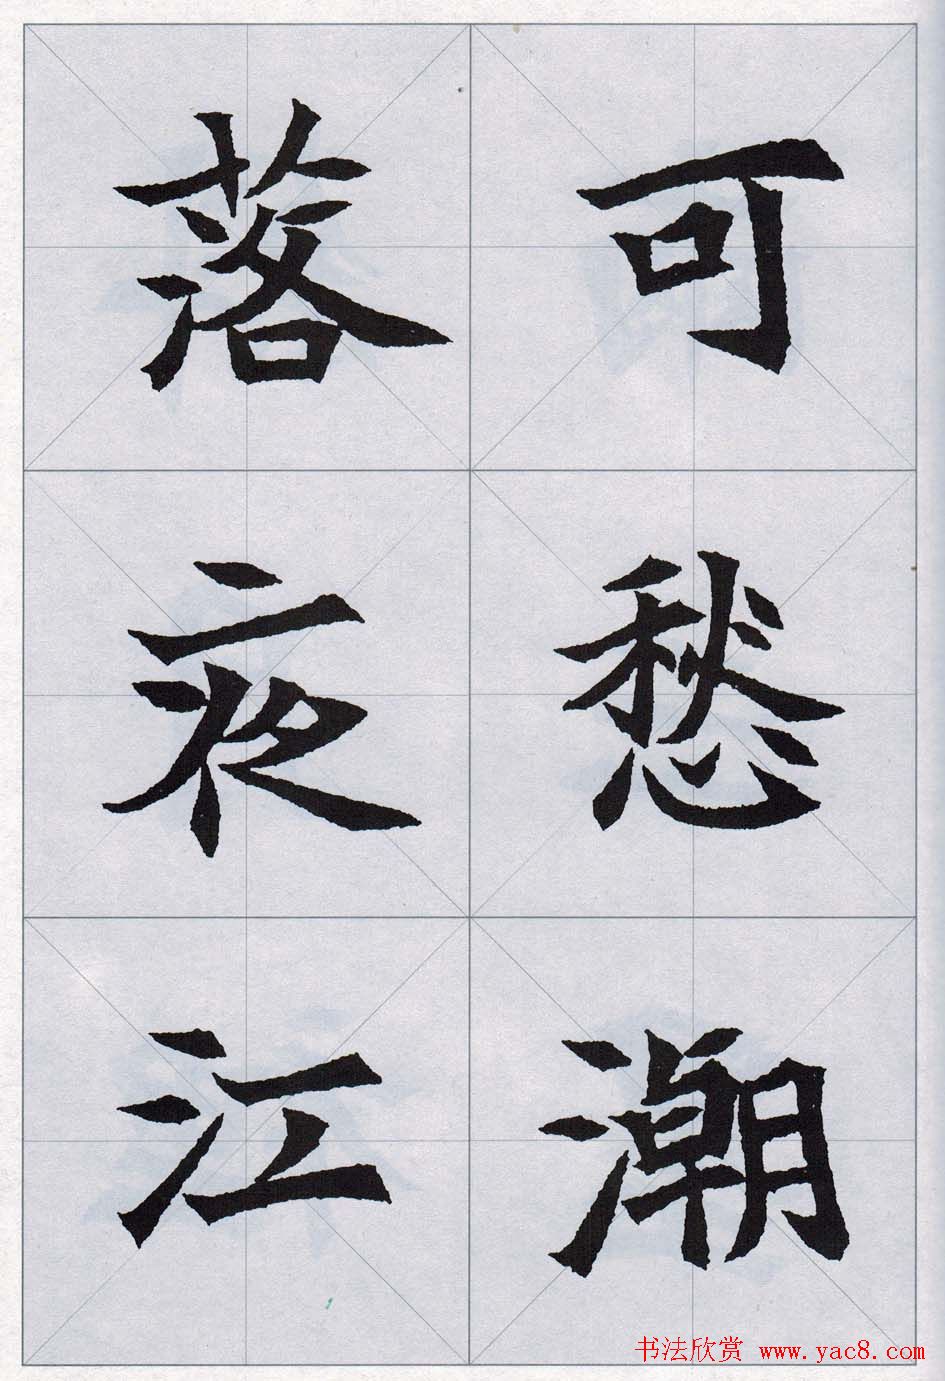 可愁潮
落夜江
书法欣赏 www.yac8.com